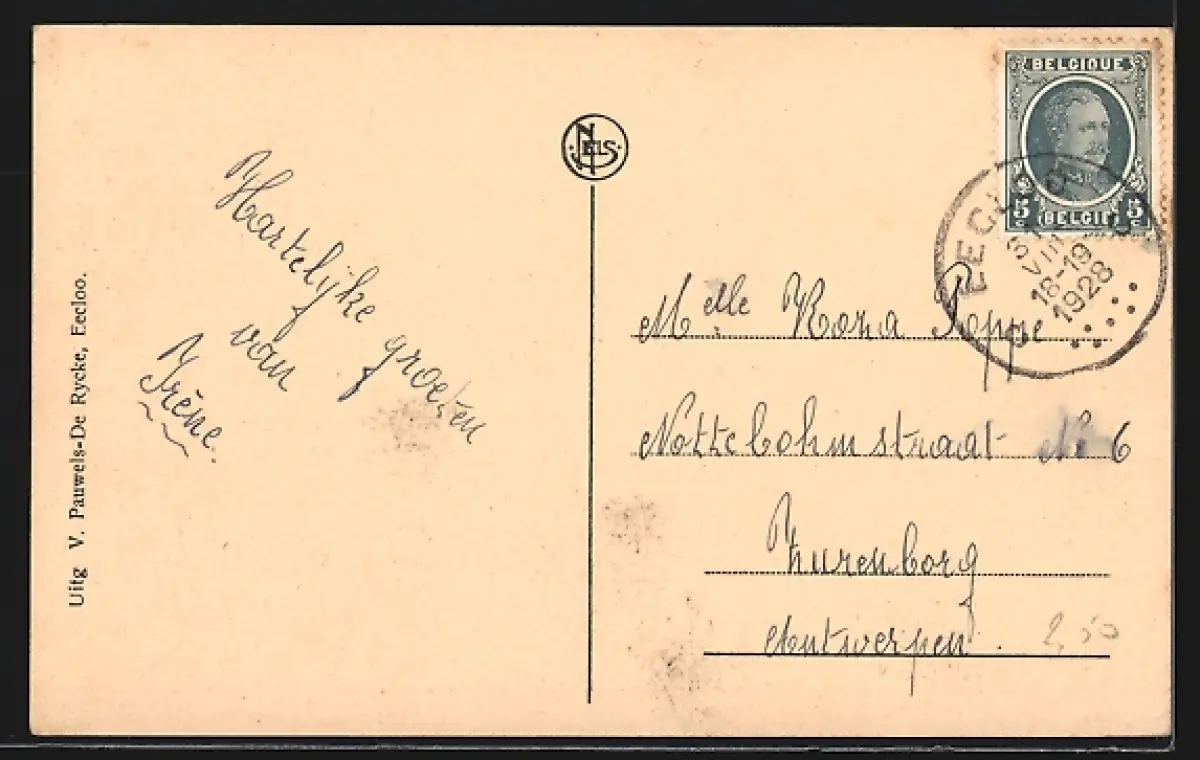 Uitg V. Pauwels-De Rycke, Eecloo.
Hartelijke groeten
van
Irène.
NELS
BELGIQUE
5 c BELGIË 5 c
EECLOO
31
VIII
18-19
1928
Melle Roza Poppe
Nottebohmstraat No 6
Zurenborg
Antwerpen.
2,50